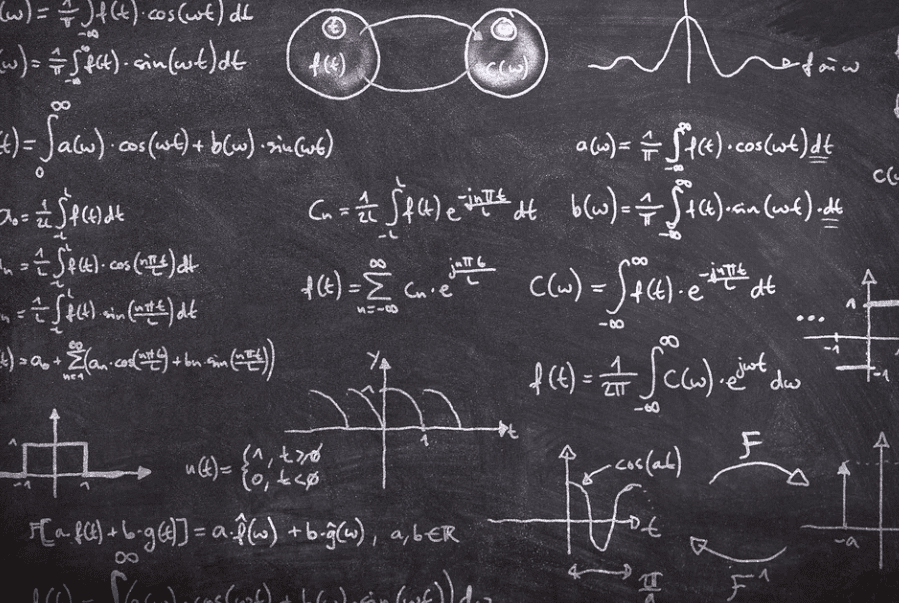 (ω) = 1/π ∫ f(t)·cos(ωt) dt
(ω) = 1/π ∫_{-∞}^{∞} f(t)·sin(ωt) dt
t
f(t)
C(ω)
(t) = ∫_0^∞ a(ω)·cos(ωt) + b(ω)·sin(ωt)
a(ω) = 1/π ∫_{-∞}^{∞} f(t)·cos(ωt) dt
a₀ = 1/2L ∫_{-L}^{L} f(t) dt
Cn = 1/2L ∫_{-L}^{L} f(t) e^{-jnπt/L} dt
b(ω) = 1/π ∫_{-∞}^{∞} f(t)·sin(ωt)·dt
n = 1/L ∫_{-L}^{L} f(t)·cos(nπt/L) dt
n = 1/L ∫_{-L}^{L} f(t)·sin(nπt/L) dt
f(t) = ∑_{n=-∞}^{∞} Cn·e^{jnπt/L}
C(ω) = ∫_{-∞}^{∞} f(t)·e^{-jnπt/L} dt
...
1
-1
-1
(t) = a₀ + ∑_{n=1}^{∞} (an·cos(nπt/L) + bn·sin(nπt/L))
f(t) = 1/2π ∫_{-∞}^{∞} C(ω)·e^{jωt} dω
y
1
1
t
1
-1
1
u(t) = {1, t≥0
0, t<0
cos(at)
t
π/a
F
F⁻¹
-a
F[a·f(t) + b·g(t)] = a·f̂(ω) + b·ĝ(ω), a,b∈ℝ